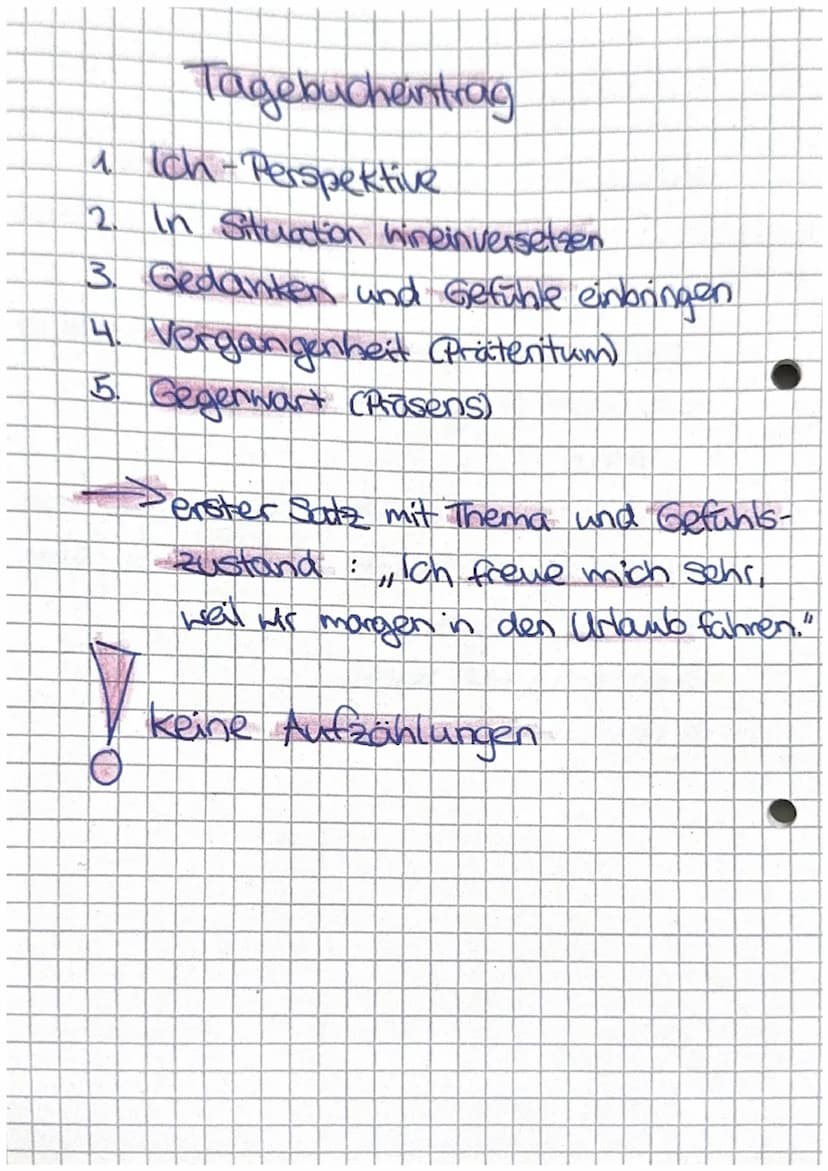 Tagebucheintrag
1. Ich-Perspektive
2. In Situation hineinversetzen
3. Gedanken und Gefühle einbringen
4. Vergangenheit (Präteritum)
5. Gegenwart (Präsens)
→ erster Satz mit Thema und Gefühls-
zustand : „Ich freue mich sehr,
weil wir morgen in den Urlaub fahren."
! keine Aufzählungen